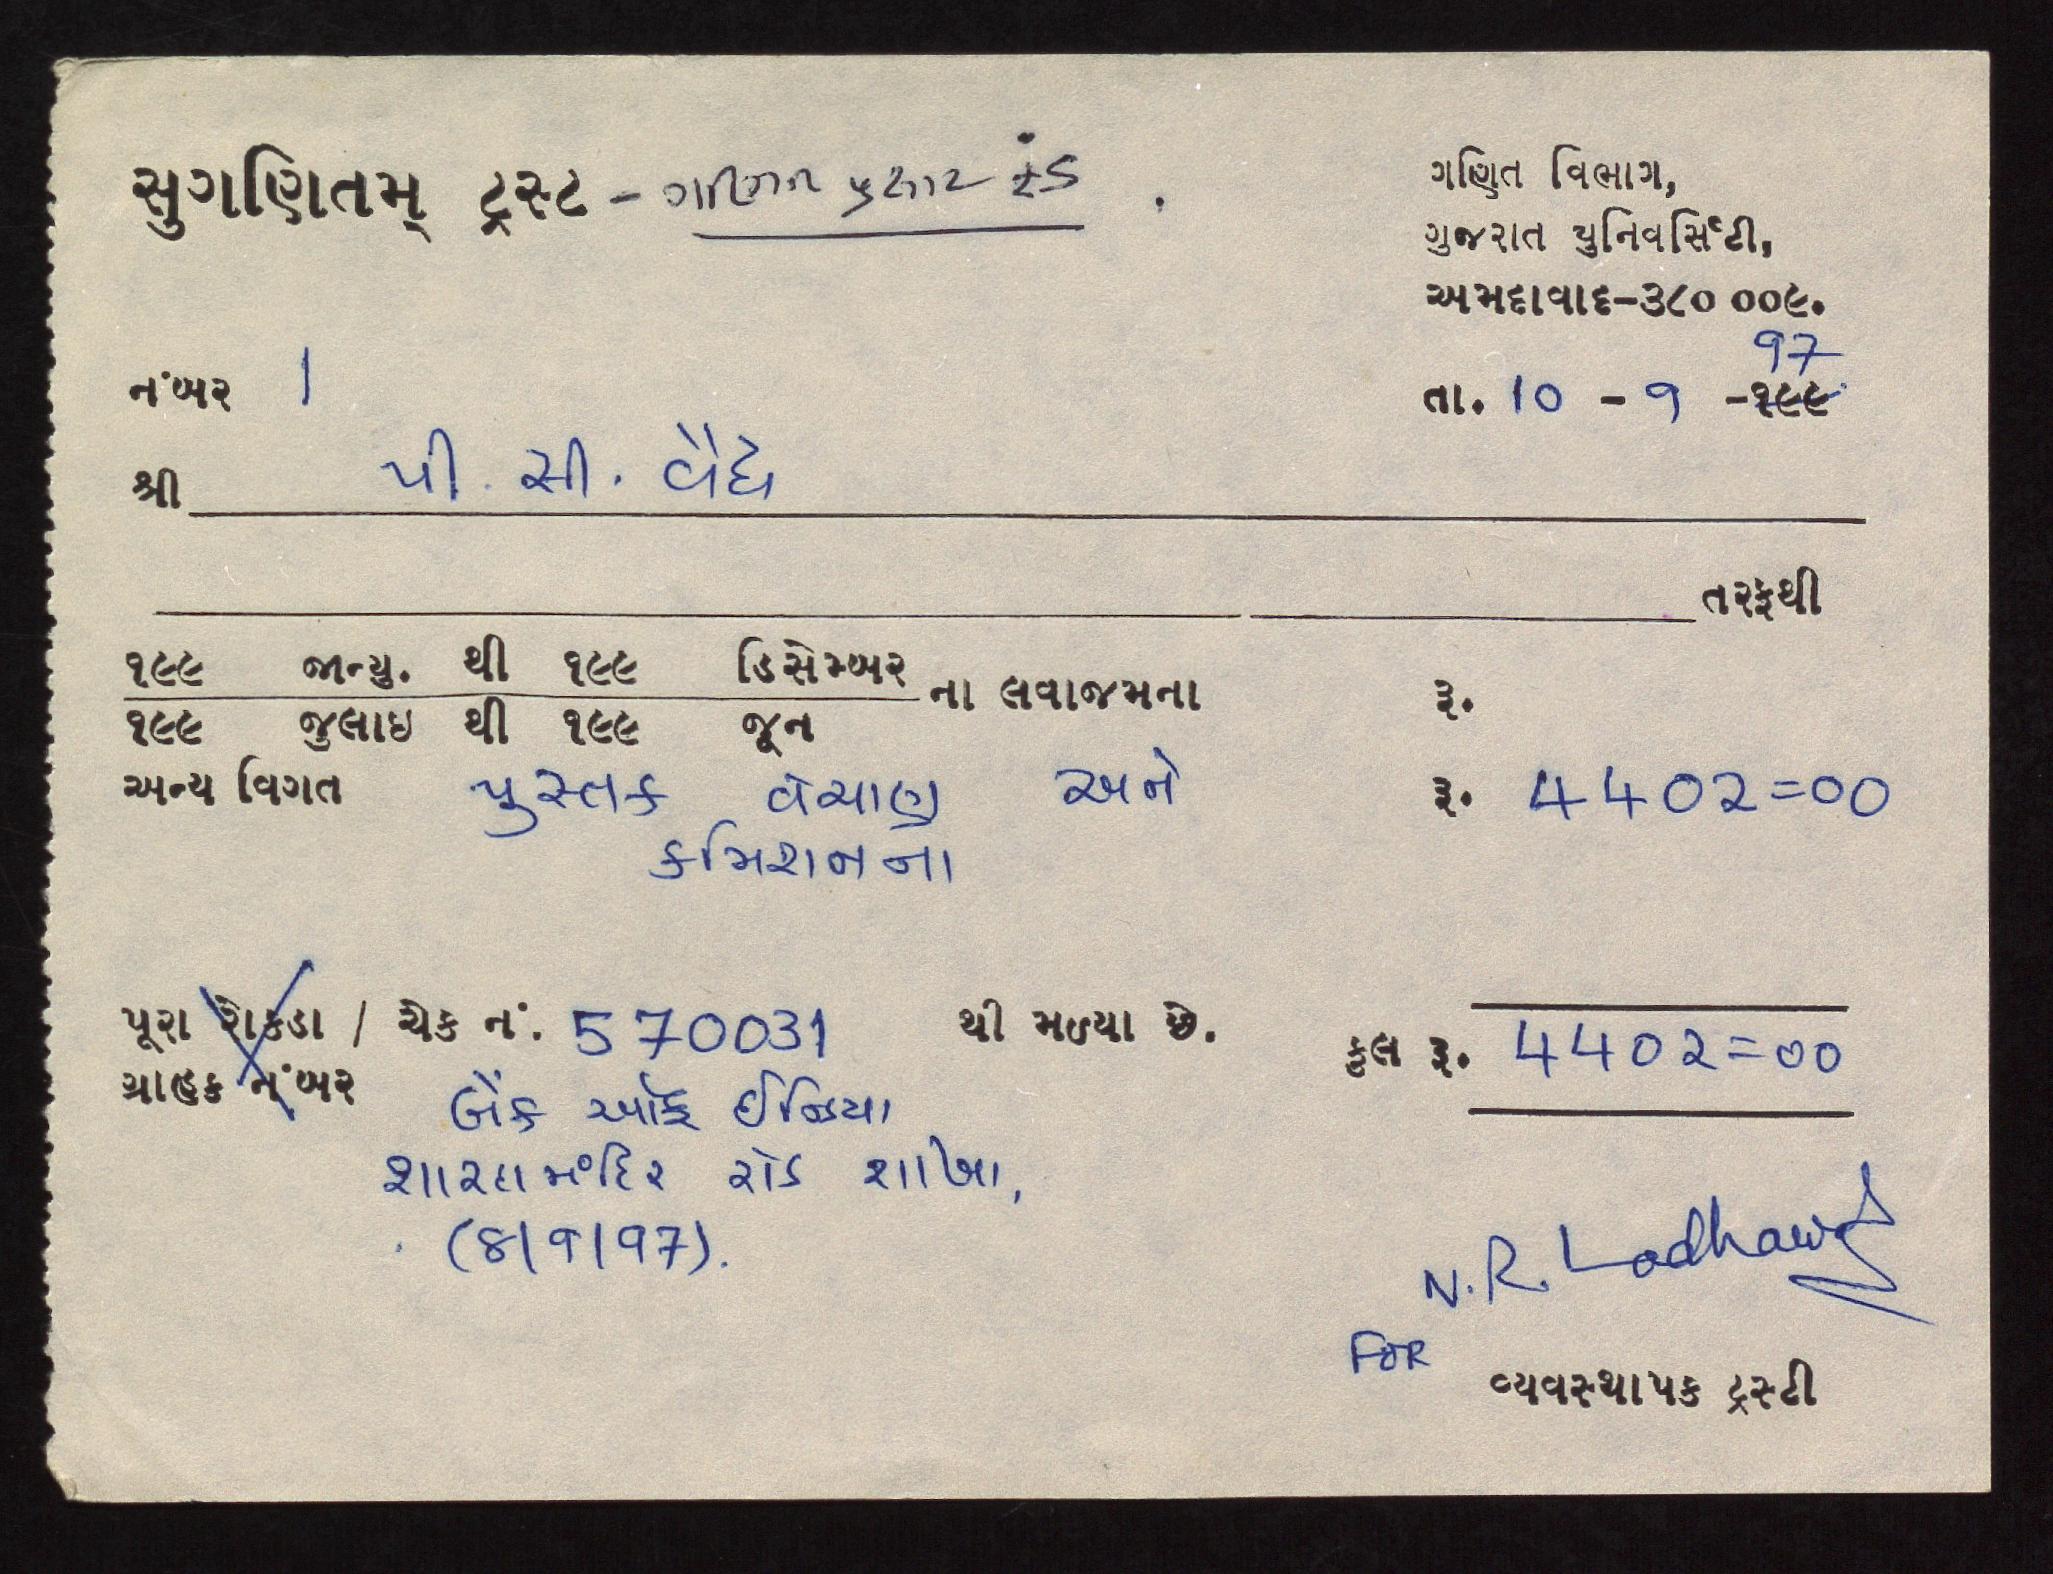 સુગણિતમ્ ટ્રસ્ટ - ગણિત પ્રસાર ફંડ .
ગણિત વિભાગ,
ગુજરાત યુનિવર્સિટી,
અમદાવાદ-૩૮૦ ૦૦૯.
નંબર 1
97
તા. 10 - 9 -૧૯૯
શ્રી પી. સી. વૈદ્ય
તરફથી
૧૯૯ જાન્યુ. થી ૧૯૯ ડિસેમ્બર
ના લવાજમના રૂ.
૧૯૯ જુલાઇ થી ૧૯૯ જૂન
અન્ય વિગત પુસ્તક વેચાણ અને રૂ. 4402=00
કમિશનના
પૂરા રોકડા / ચેક નં. 570031 થી મળ્યા છે. કુલ રૂ. 4402=00
ગ્રાહક નંબર
બેંક ઓફ ઈન્ડિયા
શારદામંદિર રોડ શાખા,
(8/9/97).
N. R. Ladhawa
FOR
વ્યવસ્થાપક ટ્રસ્ટી